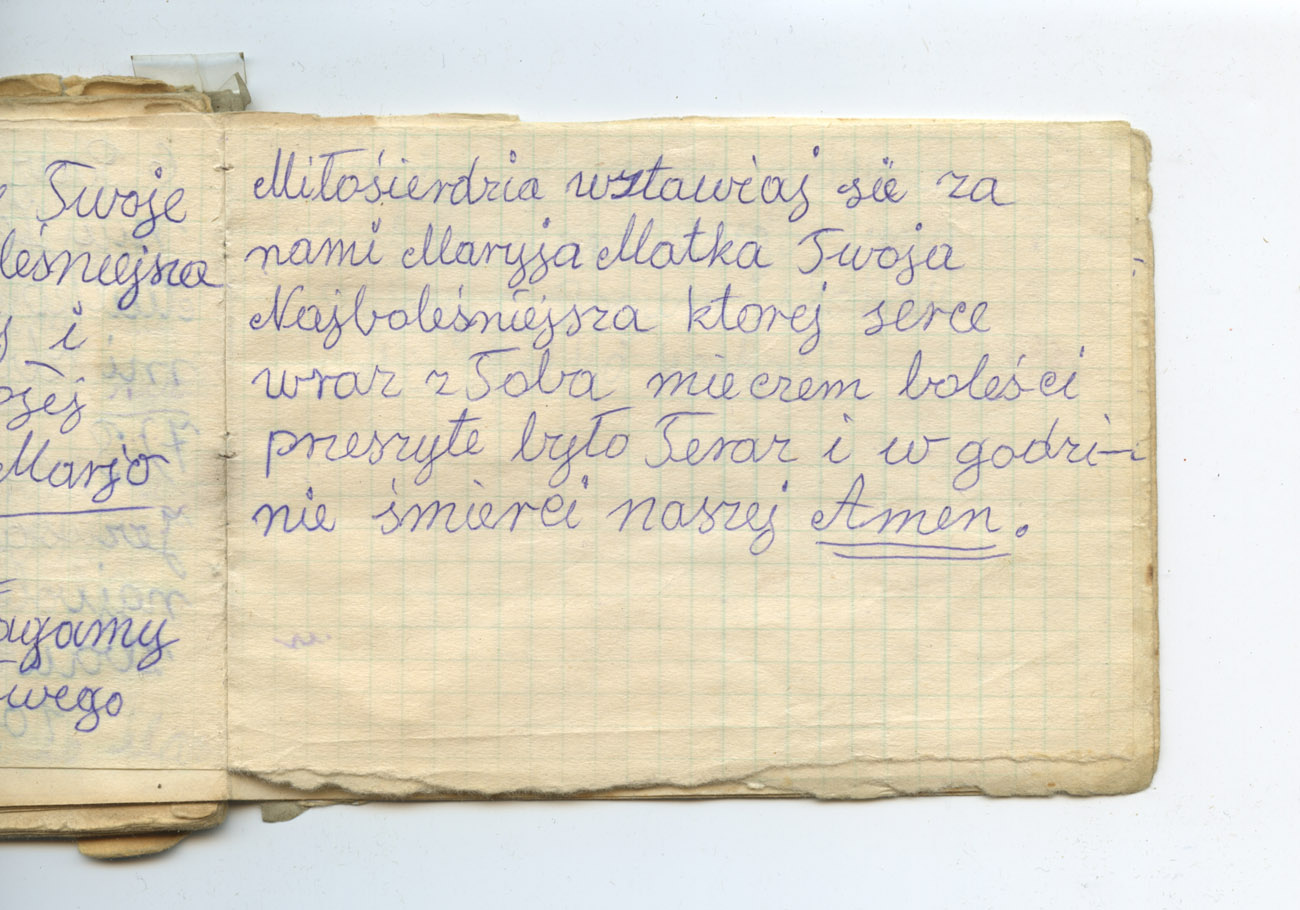 Twoje
leśniejsza
i
Marjo
wego
Miłosierdzia wstawiaj sie za
nami Maryja Matka Twoja
Najboleśniejsza ktorej serce
wraz z Toba mieczem boleści
przeszyte było Teraz i w godzi-
nie śmierci naszej Amen.